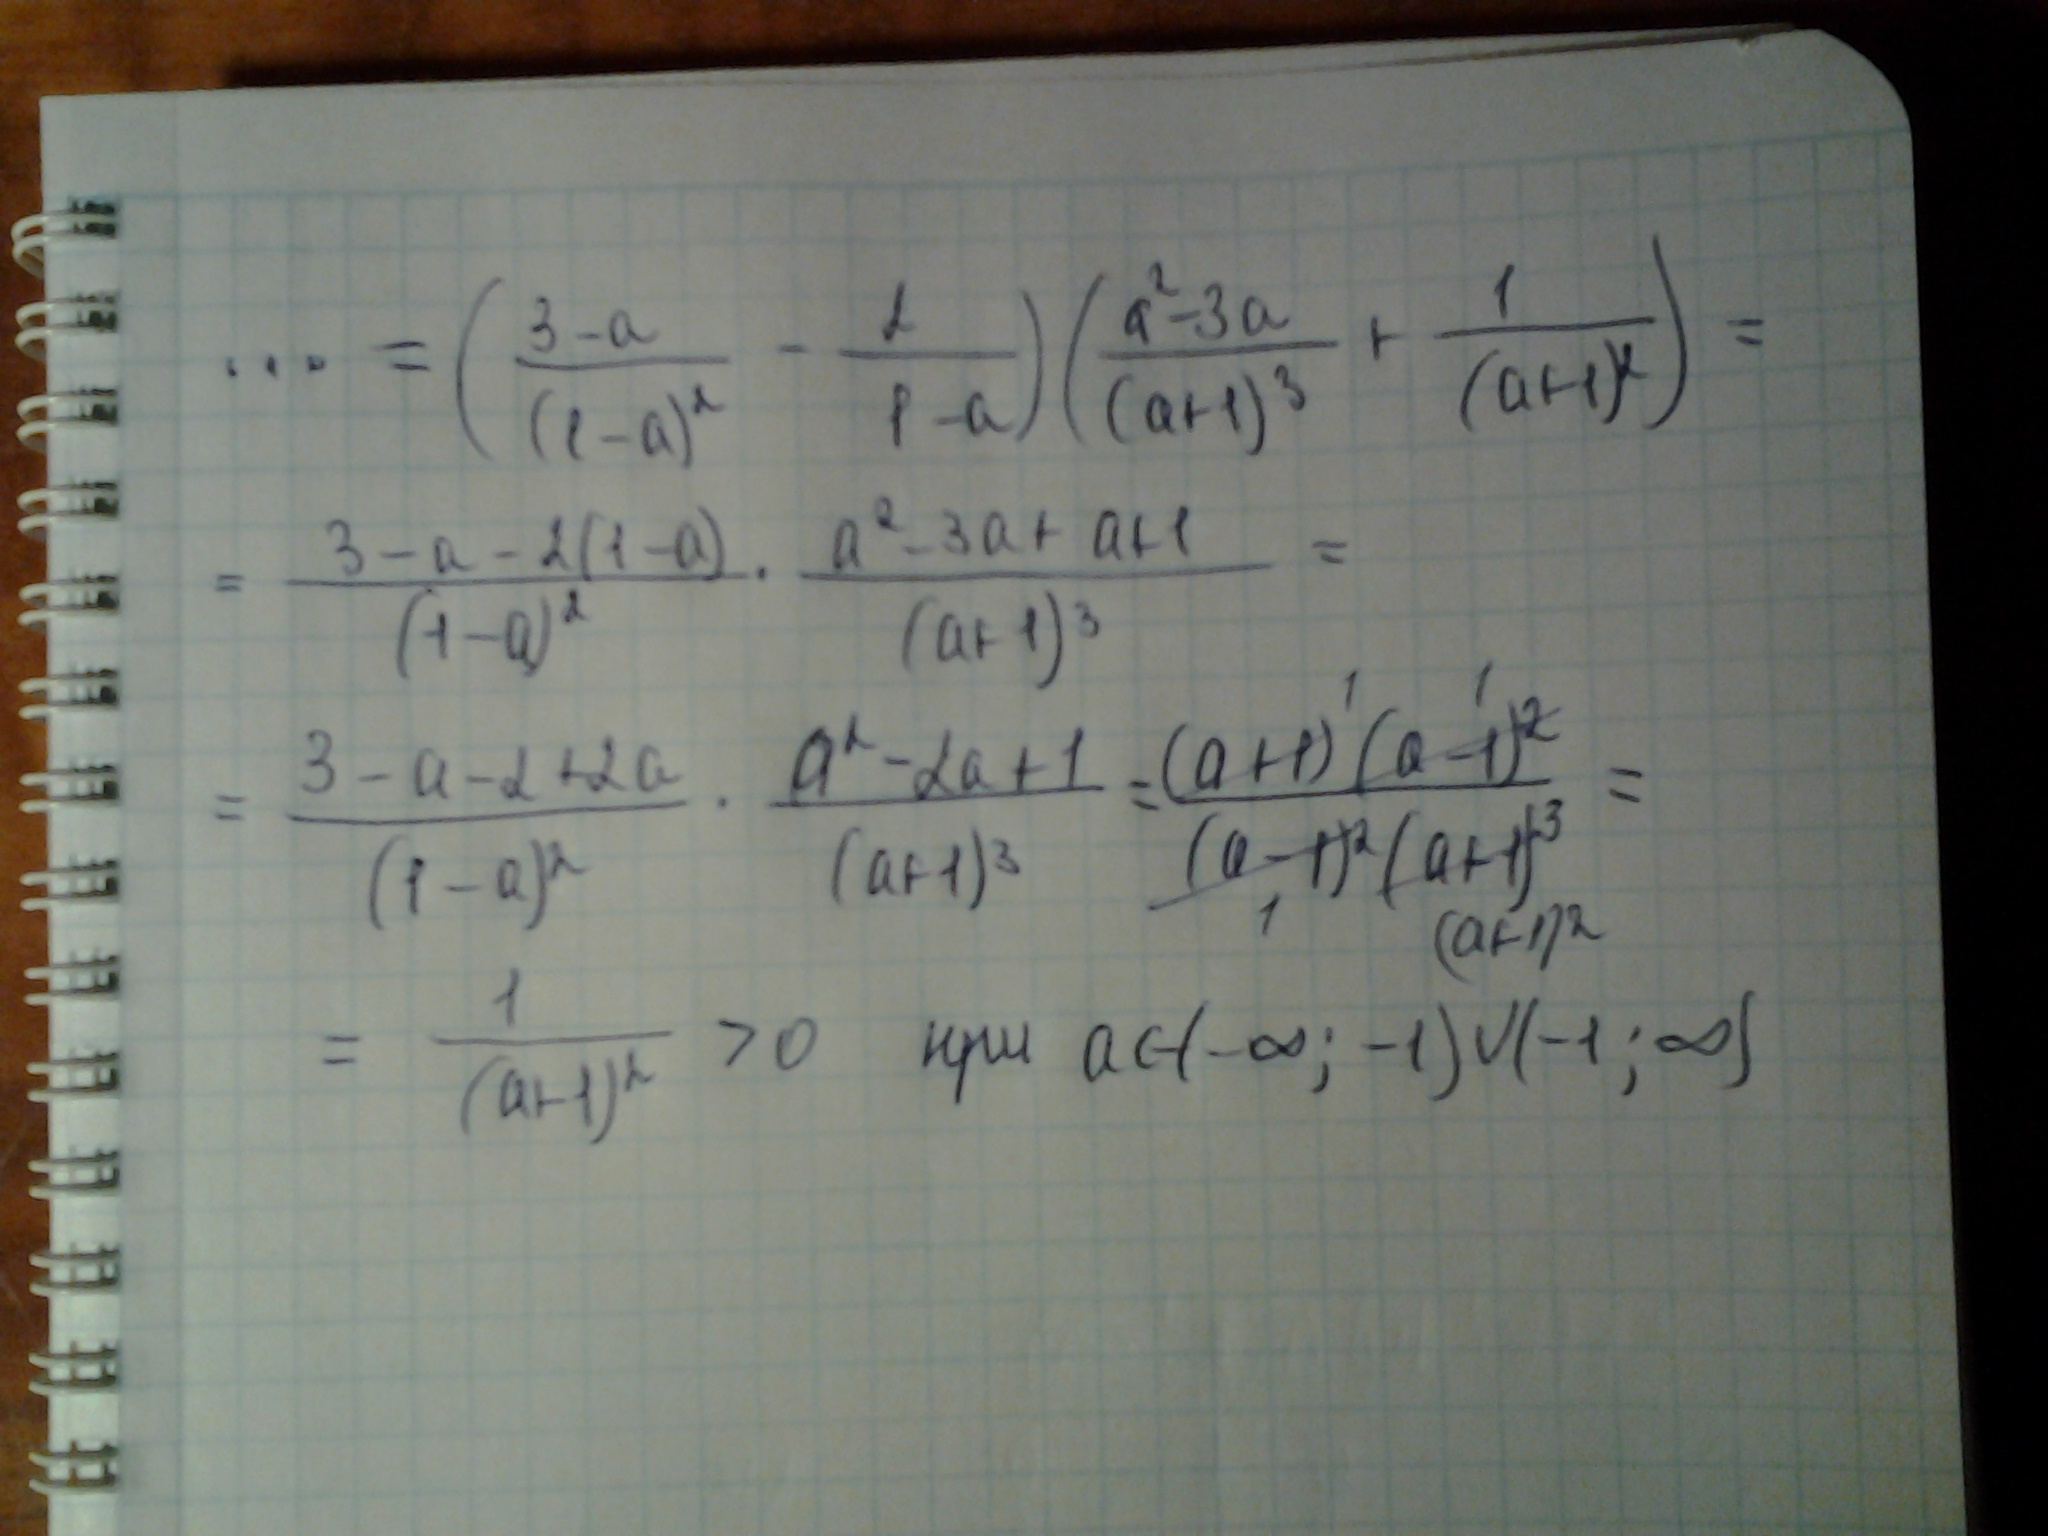 ... = ( (3-a)/(1-a)² - 2/(1-a) ) ( (a²-3a)/(a+1)³ + 1/(a+1)² ) =
= (3-a-2(1-a))/(1-a)² · (a²-3a+a+1)/(a+1)³ =
= (3-a-2+2a)/(1-a)² · (a²-2a+1)/(a+1)³ = ((a+1)¹(a-1)²¹)/((a-1)²₁(a+1)³) =
(a+1)²
= 1/(a+1)² >0 при a∈(-∞; -1)∪(-1; ∞)